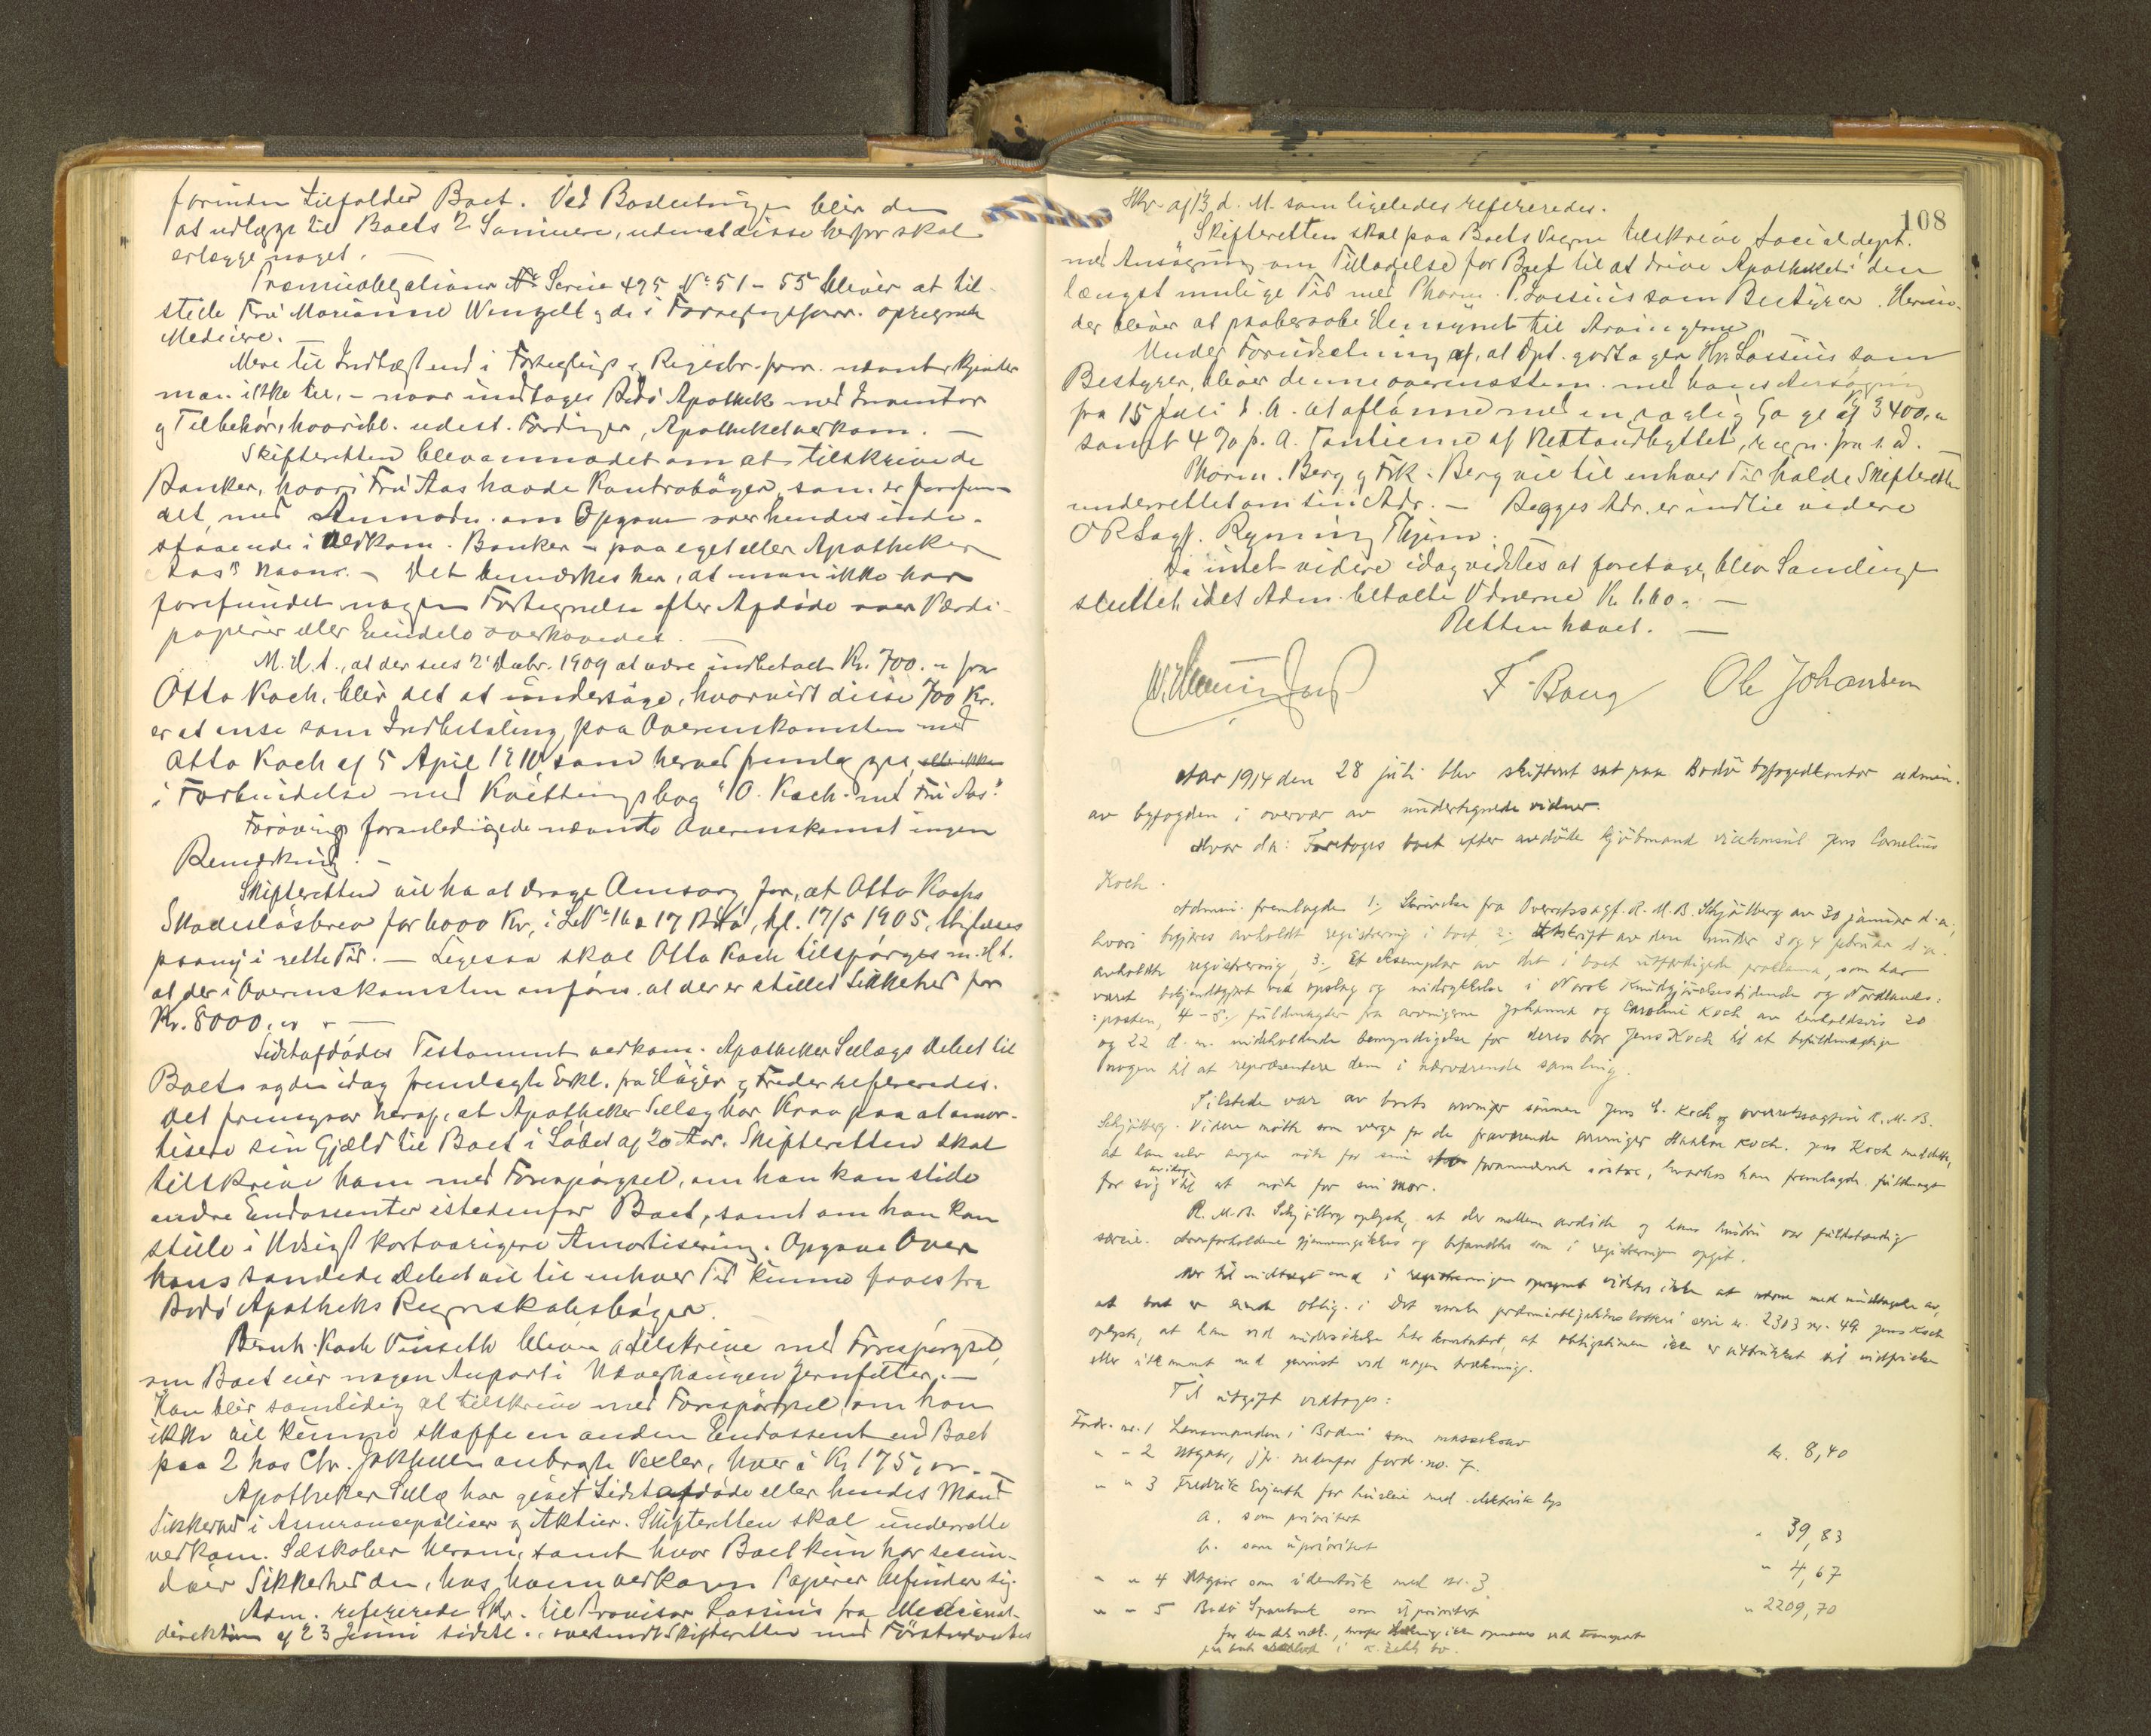 forinden tilfalder Boet. Ved Bosluttningen blir den
at udlægge til Boets 2 Sønner, uden at disse herfor skal
erlægge noget. —
Præmieobligationer Serie 495 No 51 - 55 bliver at til-
stille Fru Marianne Wenzell og de i opregnede
Medeiere. —
Mere til Indtægt end i Fortegnelsen og Registr. forr. nævnt kjender
man ikke til, - naar undtages Bodø Apothek med Inventar
og Tilbehør, hvoribl. udest. Fordringer, Apotheket vedkom. —
Skifteretten blev anmodet om at tilskrive de
Banker, hvori Fru Aas havde Kontrabøger, som er forefun-
det, med Anmodn. om Opgave over hendes inde-
staaende i vedkom. Banker - paa eget eller Apotheker
Aas's Navn. - Det bemærkes her, at man ikke har
forefundet nogen Fortegnelse efter Afdøde over Værdi-
papirer eller Eiendele overhovedet. —
M. H. t., at der sees 2' Debr. 1909 at være indbetalt Kr. 700.- fra
Otto Koch, blir det at undersøge, hvorvidt disse 700 Kr.
er at anse som Indbetaling paa Overenskomsten med
Otto Koch af 5 April 1910 som herved fremlægges,
i Forbindelse med Kvitteringsbog "O. Koch med Fru Aas".
Forøvrigt foranledigede nævnte Overenskomst ingen
Bemærkning. —
Skifteretten vil ha at drage Omsorg for, at Otto Kochs
Skadesløsbrev for 6000 Kr, i L. No 16 a 17 Bodø, tgl. 17/5 1905, thinglæses
paany i rette Tid. — Ligesaa skal Otto Koch tilspørges m. H. t.
at der i Overenskomsten anføres at der er stillet Sikkerhed for
Kr. 8000,00 . —
Sidstafdødes Testament vedkom. Apotheker Sellægs Debet til
Boet og den idag fremlagte Erkl. fra Häger og Freder refereredes.
Det fremgaar heraf, at Apotheker Sellæg har Krav paa at amor-
tisere sin Gjæld til Boet i Løbet af 20 Aar. Skifteretten skal
tilskrive ham med Forespørgsel, om han kan stille
andre Endossenter istedenfor Boet, samt om han kan
stille i Udsigt kortvarigere Amortisering. Opgave over
hans samlede Debet vil til enhver Tid kunne faaes fra
Bodø Apotheks Regnskabsbøger.
Bernh. Koch Vinseth bliver at tilskrive med Forespørgsel,
om Boet eier nogen Anpart i Jernfelter. —
Han blir samtidig at tilskrive med Forespørgsel, om han
ikke vil kunne skaffe en anden Endossent end Boet
paa 2 hos Chr. Jakhelln anbragte Vexler, hver á Kr 175,00. —
Apotheker Sellæg har givet Sidstafdøde eller hendes Mand
Sikkerhed i Assurancepoliser og Aktier. Skifteretten skal underrette
vedkom. Selskaber herom, samt hvor Boet kun har secun-
dær Sikkerhed den, hos hvem vedkom Papirer befinder sig.
Adm. refererede Skr. til Provisor Lossius fra Medicinal-
direktøren af 23 Juni sidstl. oversendt Skifteretten med
Skr. af 13 d. M. som ligeledes refereredes.
108
Skifteretten skal paa Boets Vegne tilskrive Socialdept.
med Ansøgning om Tilladelse for Boet til at drive Apotheket i den
længst mulige Tid med Pharm. P. Lossius som Bestyrer. Herun-
der bliver at paaberaabe Hensynet til Arvingerne.
Under Forudsetning af, at Dpt. godtager Hr. Lossius som
Bestyrer, bliver denne overensstem. med hans Ansøgning
fra 15 Juli d. A. at aflønne med en aarlig Gage af Kr 3400,00
samt 4 % p. A. Tantieme af Nettoudbyttet, regn. fra s. D. —
Pharm. Berg og Frk. Berg vil til enhver Tid holde Skifteretten
underrettet om sin Adr. — Begges Adr. er indtil videre
O R Sagf. Ryning Thjem.
Da intet videre idag vidstes at foretage, blev Samlingen
sluttet, idet Adm. betalte Vidnerne Kr 1.60. —
Retten hævet. —
F. Bang Ole Johansen
Aar 1914 den 28 juli blev skifteret sat paa Bodø byfogedkontor admin.
av byfogden i overvær av undertegnede vidner.
Hvor da: Foretoges boet efter avdøde kjøbmand vicekonsul Jens Cornelius
Koch.
Admin. fremlagde 1., Skrivelse fra Overretssagf. R. M. B. Schjølberg av 30 januar d. a.,
hvori begjæres avholdt registrering i boet, 2., Utskrift av den under 3 og 4 februar d. a.
avholdte registrering, 3., Et eksemplar av det i boet utfærdigede proklama, som har
været bekjendtgjort ved opslag og indrykkelse i Norsk Kundgjørelsestidende og Nordlands-
posten, 4-5., fuldmagter fra arvingerne Johanna og Caroline Koch av henholdsvis 20
og 22 d. m. indeholdende bemyndigelse for deres bror Jens Koch til at befuldmægtige
nogen til at repræsentere dem i nærværende samling.
Tilstede var av boets arvinger sønnen Jens E. Koch og overretssagfører R. M. B.
Schjølberg. Videre møtte som verge for de fraværende arvinger Haakon Koch. Jens Koch meddelte,
at han selv avgav møte for sin foranævnte søstre, hvorhos han fremlagde fuldmagt
for sig av idag til at møte for sin mor.
R. M. B. Schjølberg oplyste, at der mellem avdøde og hans hustru var fuldstændig
særeie. Arveforholdene gjennemgikkes og befandtes som i registreringen opgit.
Mer til indtægt end i registreringen opregnet vidstes ikke at være med undtagelse av,
at boet er eiende oblig. i Det norske præmieobligationslotteri serie nr. 2303 nr. 49. Jens Koch
oplyste, at han ved undersøkelse har konstatert, at obligationen ikke er uttrukket til indfrielse
eller utkommet med gevinst ved nogen trækning.
Til utgift vedtoges:
Fordr. nr. 1 Lensmanden i Bodin som massekrav kr. 8,40
" - 2 Utgaar, jfr. nedenfor fordr. no. 7.
" " 3 Fredrik Evjenth for husleie med elektrisk lys
a. som prioritert " 39,83
b. som uprioritert " 4,67
" " 4 Utgaar som identisk med nr. 3
" - 5 Bodø Sparebank som uprioritert " 2209,70